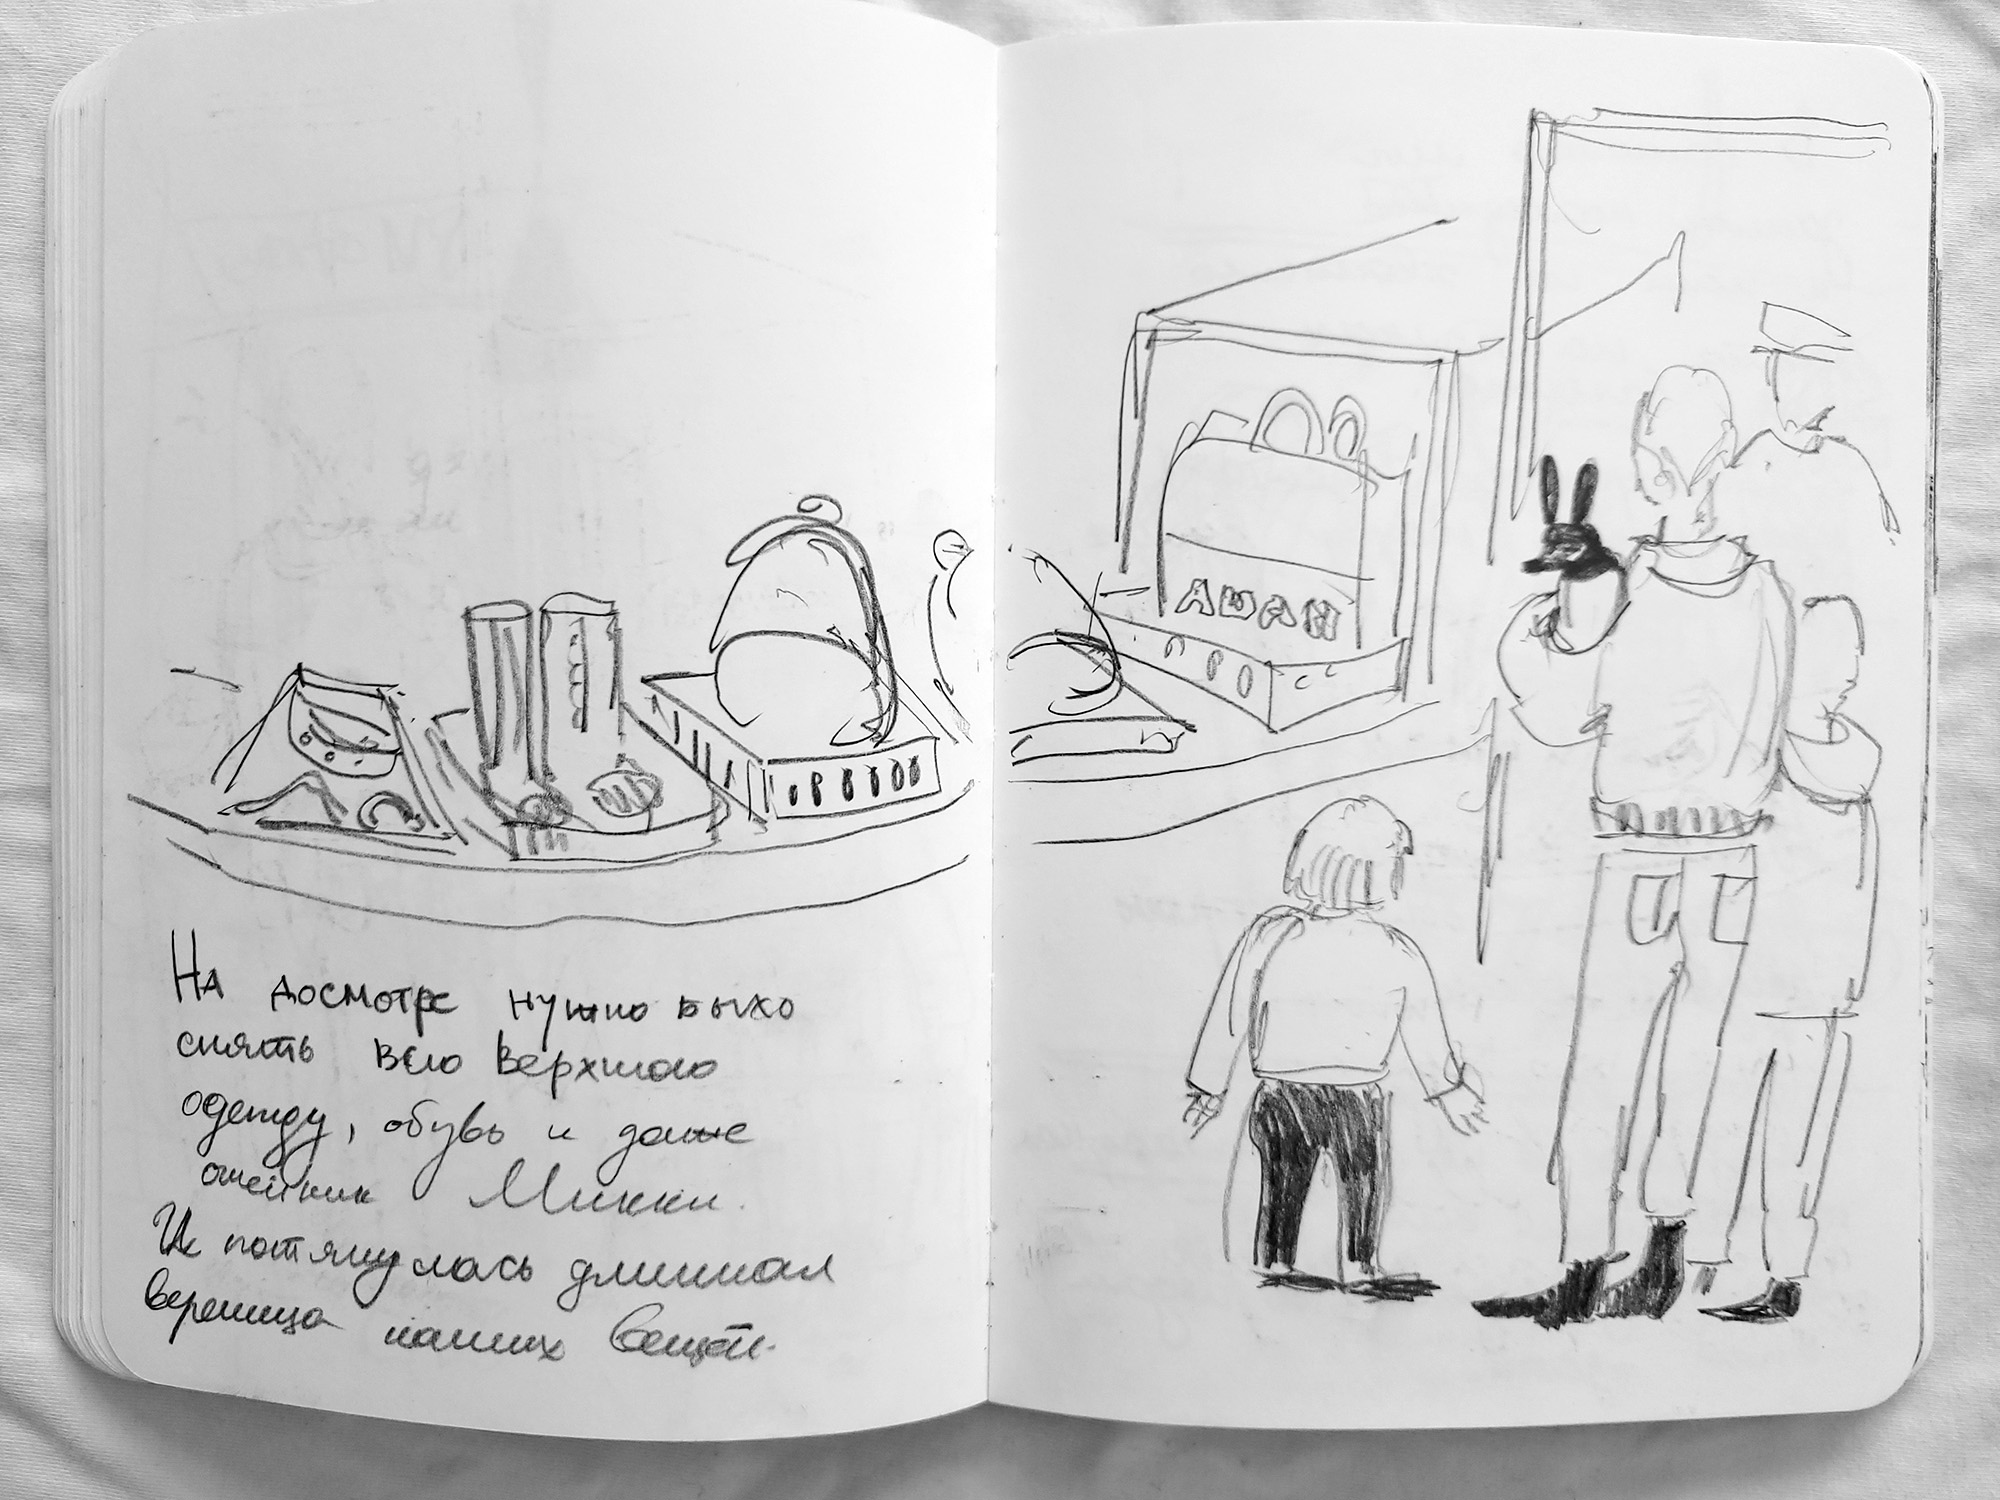 На досмотре нужно было
снять всю верхнюю
одежду, обувь и даже
ошейник Микки.
И потянулась длинная
вереница наших вещей.
АШАН